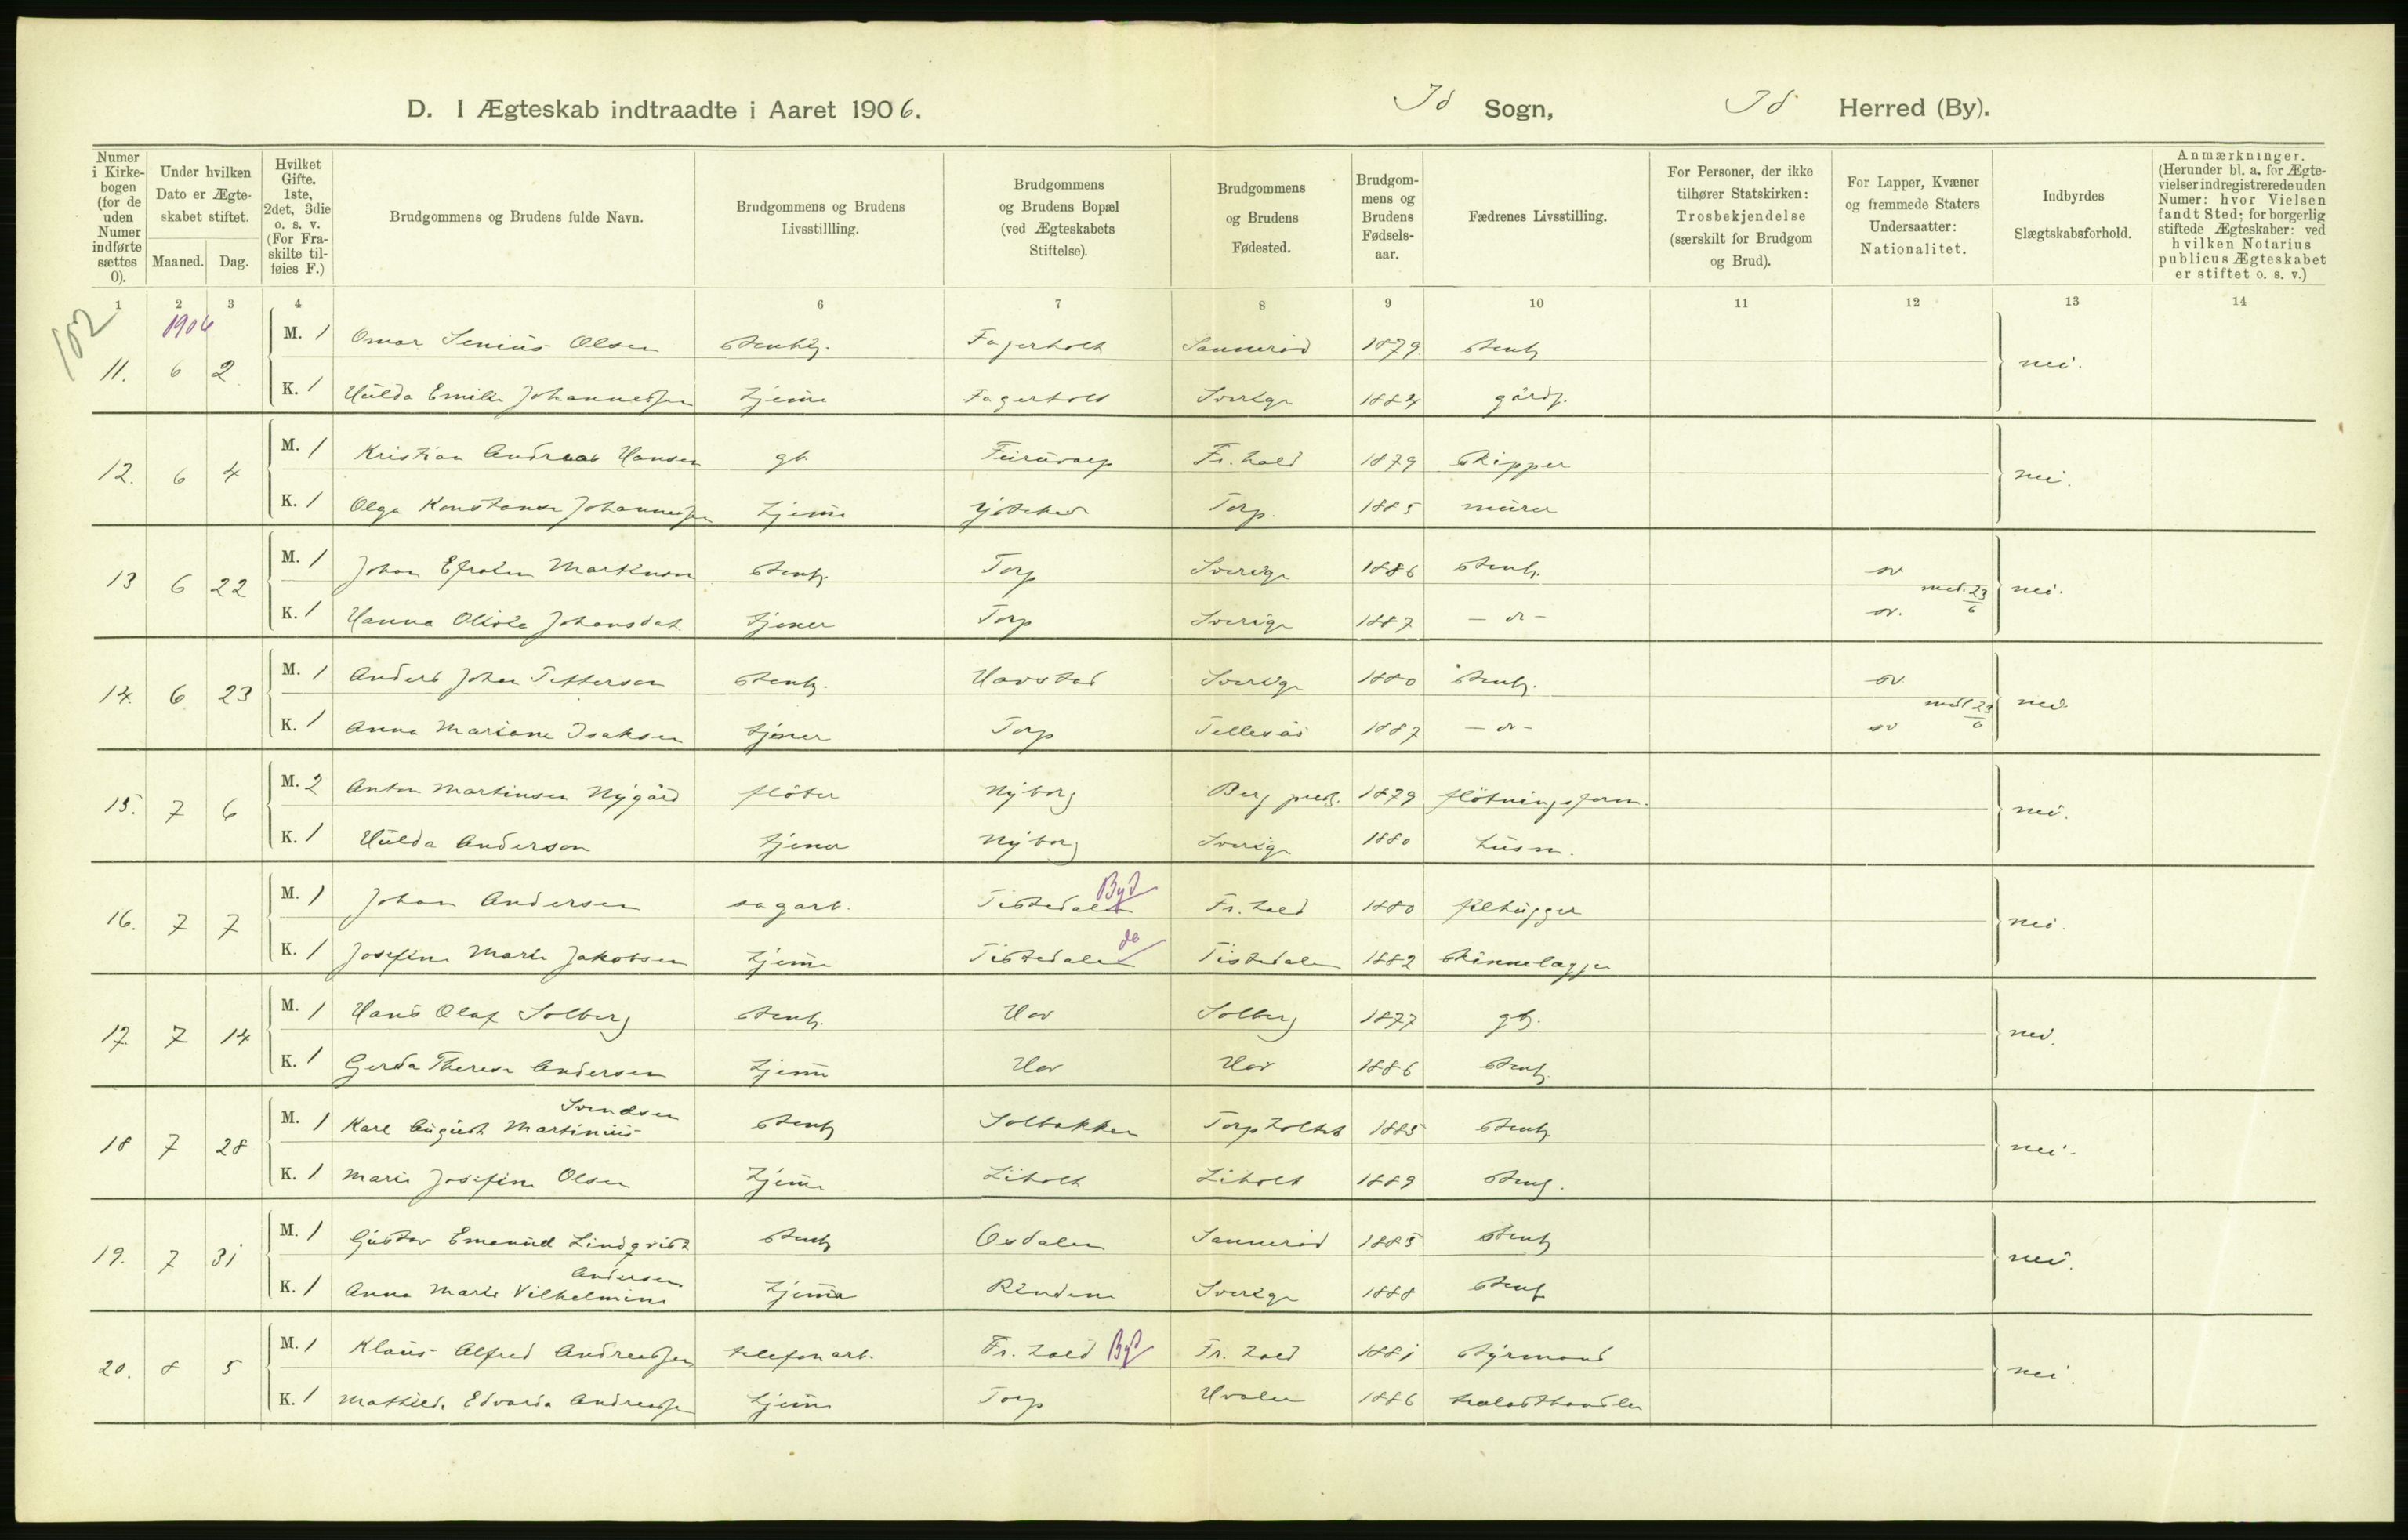 D. I Ægteskab indtraadte i Aaret 1906. Id Sogn, Id Herred (By).
Numer i Kirkebogen (for de uden Numer indførte sættes 0).
Under hvilken Dato er Ægteskabet stiftet.
Maaned. Dag.
Hvilket Gifte. 1ste, 2det, 3die o. s. v. (For Fraskilte tilføies F.)
Brudgommens og Brudens fulde Navn.
Brudgommens og Brudens Livsstillling.
Brudgommens og Brudens Bopæl (ved Ægteskabets Stiftelse).
Brudgommens og Brudens Fødested.
Brudgommens og Brudens Fødselsaar.
Fædrenes Livsstilling.
For Personer, der ikke tilhører Statskirken: Trosbekjendelse (særskilt for Brudgom og Brud).
For Lapper, Kvæner og fremmede Staters Undersaatter: Nationalitet.
Indbyrdes Slægtskabsforhold.
Anmærkninger. (Herunder bl. a. for Ægtevielser indregistrerede uden Numer: hvor Vielsen fandt Sted; for borgerlig stiftede Ægteskaber: ved hvilken Notarius publicus Ægteskabet er stiftet o. s. v.)
1 2 3 4 6 7 8 9 10 11 12 13 14
102 1906
11. 6 2 M. 1 Omar Senius Olsen stenh. Fagerholt Sannerød 1879 stenh nei.
K. 1 Hulda Emilie Johannessen hjeme Fagerholt Sverige 1884 gårdj.
12. 6 4 M. 1 Kristian Andreas Hansen gb. Fr. hald 1879 skipper nei.
K. 1 Olga Konstanse Johannessen hjeme Torp. 1885 murer
13 6 22 M. 1 Johan Efraim Markuson stenh. Torp Sverige 1886 stenh. sv nei.
K. 1 Hanna Johansdat. tjener Torp Sverige 1887 – do – sv. med. 23/6
14. 6 23 M. 1 Anders Johan Petterson stenh. Havstad Sverige 1880 stenh. sv nei.
K. 1 Anna Mariane Isaksen tjener Torp 1887 – do – sv 23/6
15. 7 6 M. 2 Anton Martinsen Nygård fløter Nyborg Berg præst. 1879 fløtningsform. nei.
K. 1 Hulda Anderson tjener Nyborg Sverige 1880 husm.
16. 7 7 M. 1 Johan Andersen sagarb. Tistedalen Byd Fr. hald 1880 filhugger nei.
K. 1 Josefine Marie Jakobsen hjeme Tistedalen do Tistedalen 1882 skinnelægger
17. 7 14 M. 1 Hans Olaf Solberg stenh. Hov Solberg 1877 gb. nei.
K. 1 Gerda Therese Andersen hjeme Hov Hov 1886 stenh.
18 7 28 M. 1 Karl August Martinius Svendsen stenh Solbakken Torpholtet 1885 stenh nei.
K. 1 Marie Josefine Olsen hjeme Liholt Liholt 1889 stenh.
19. 7 31 M. 1 Gustav Emanuel Lindqvist stenh Osdalen Sannerød 1885 stenh nei.
K. 1 Anna Marie Vilhelmine Andersen hjeme Sverige 1888 stenh
20. 8 5 M. 1 Klaus Alfred Andreassen telefonarb. Fr. hald Byd Fr. hald 1881 styrmand nei.
K. 1 Mathilde Edvarda Andreassen hjeme Torp Hvaler 1886 trælasthandler